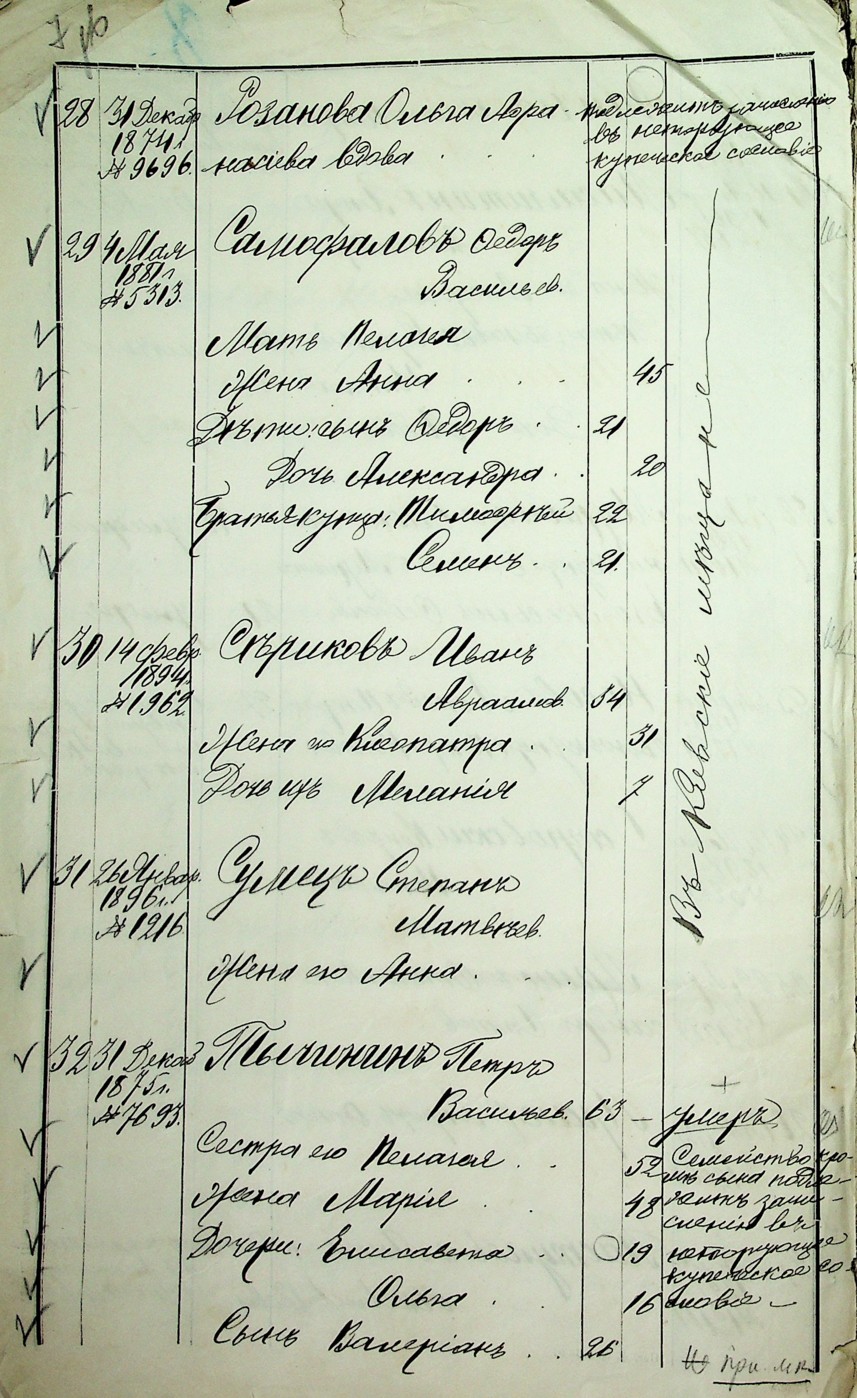 28 31 Декаб Розанова Ольга Афра- подлежитъ зачисленію
1874 г. въ неторгующее
№ 9696. насіева вдова купеческое сословіе
29 4 Мая Самофаловъ Ѳедоръ
1881 г.
№ 5313. Васильев.
Мать Пелагея
Жена Анна 45
Дѣти: сынъ Ѳедоръ 21
Дочь Александра 20
Братья купца: Тимофей 22
Семенъ 21.
Въ Кіевскіе мѣщане
30 14 февр. Сѣриковъ Иванъ
1894.
№ 1962 Авраамов. 34
Жена его Клеопатра 31
Дочь ихъ Меланія 7
31 26 Январ. Сумецъ Степанъ
1896 г.
№ 1216 Матвѣев.
Жена его Анна
32 31 Декаб Тычининъ Петръ
1875 г.
№ 7693. Васильев. 63 — умеръ
Сестра его Пелагея 52 Семейство кро-
мѣ сына подле-
Жена Марія 48 житъ зачи-
сленію въ
Дочери: Елисавета 19 неторгующее
купеческое со-
Ольга 16 словіе —
Сынъ Валеріанъ 26
при